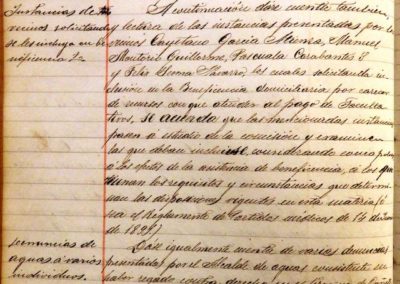 Instancias de
vecinos solicitando
se les incluya en be
neficencia
A continuación dióse cuenta también
y lectura de las instancias presentadas por los
vecinos Cayetano García Muma, Manuel
Monterio Guillerme, Pascuala Carabantes
y Felix Navarro, los cuales solicitan la in
clusión en la Beneficencia domiciliaria por carecer
de recursos con que atender al pago de Faculta
tivos, se acuerda que las mencionadas instancias
pasen a estudio de la comisión y examine
las que deban incluirse, considerando como pobres
a los efectos de la asistencia de beneficencia, a los que
reunan los requisitos y circunstancias que determi
nan las disposiciones vigentes en esta materia, ó
sea el Reglamento de Partidos médicos de 14 de Junio
de 1891.
Denuncias de
aguas á varios
individuos.
Dióse igualmente cuenta de varias denuncias
presentadas por el Alcalde de aguas consistente en
haber regado